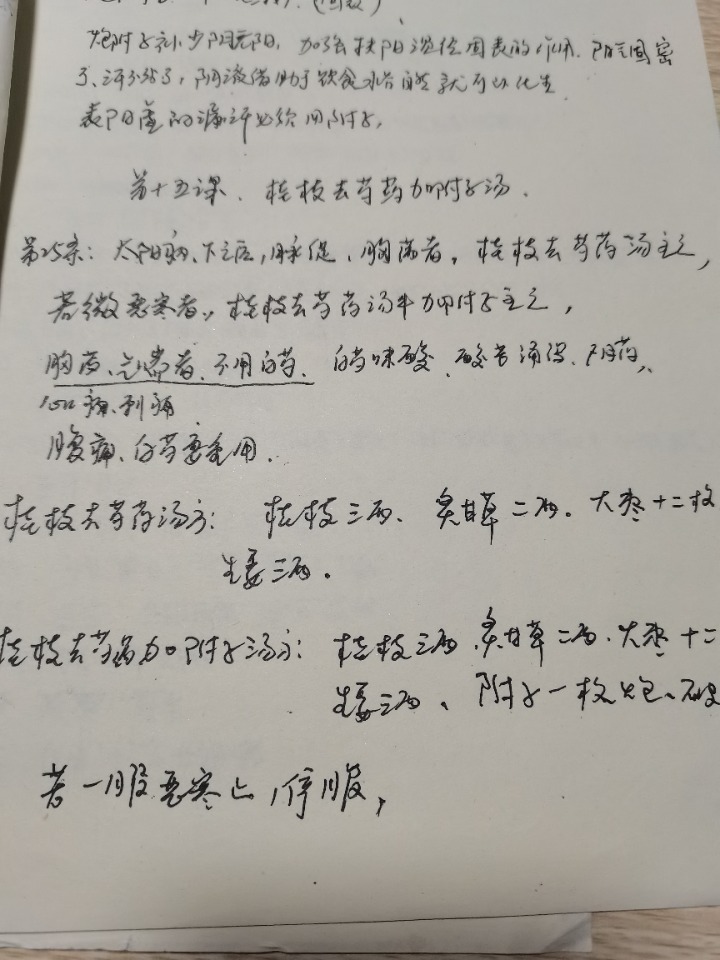 炮附子补少阴元阳，加强扶阳温经固表的作用，阳气固密
了、汗不出了，阴液借助于饮食水谷自然就可以化生
表阳虚的漏汗必须用附子，
第十五课、桂枝去芍药加附子汤．
第25条：太阳病、下之后，脉促、胸满者，桂枝去芍药汤主之，
若微恶寒者，桂枝去芍药汤中加附子主之，
胸满、气喘者、不用白芍、白芍味酸、酸苦涌泄、阴药、
心口痛、利痛
腹痛、白芍要重用．
桂枝去芍药汤方：桂枝三两、炙甘草二两．大枣十二枚
生姜三两．
桂枝去芍药加附子汤方：桂枝三两、炙甘草二两．大枣十二
生姜三两、附子一枚炮、破
若一服恶寒止，停服，